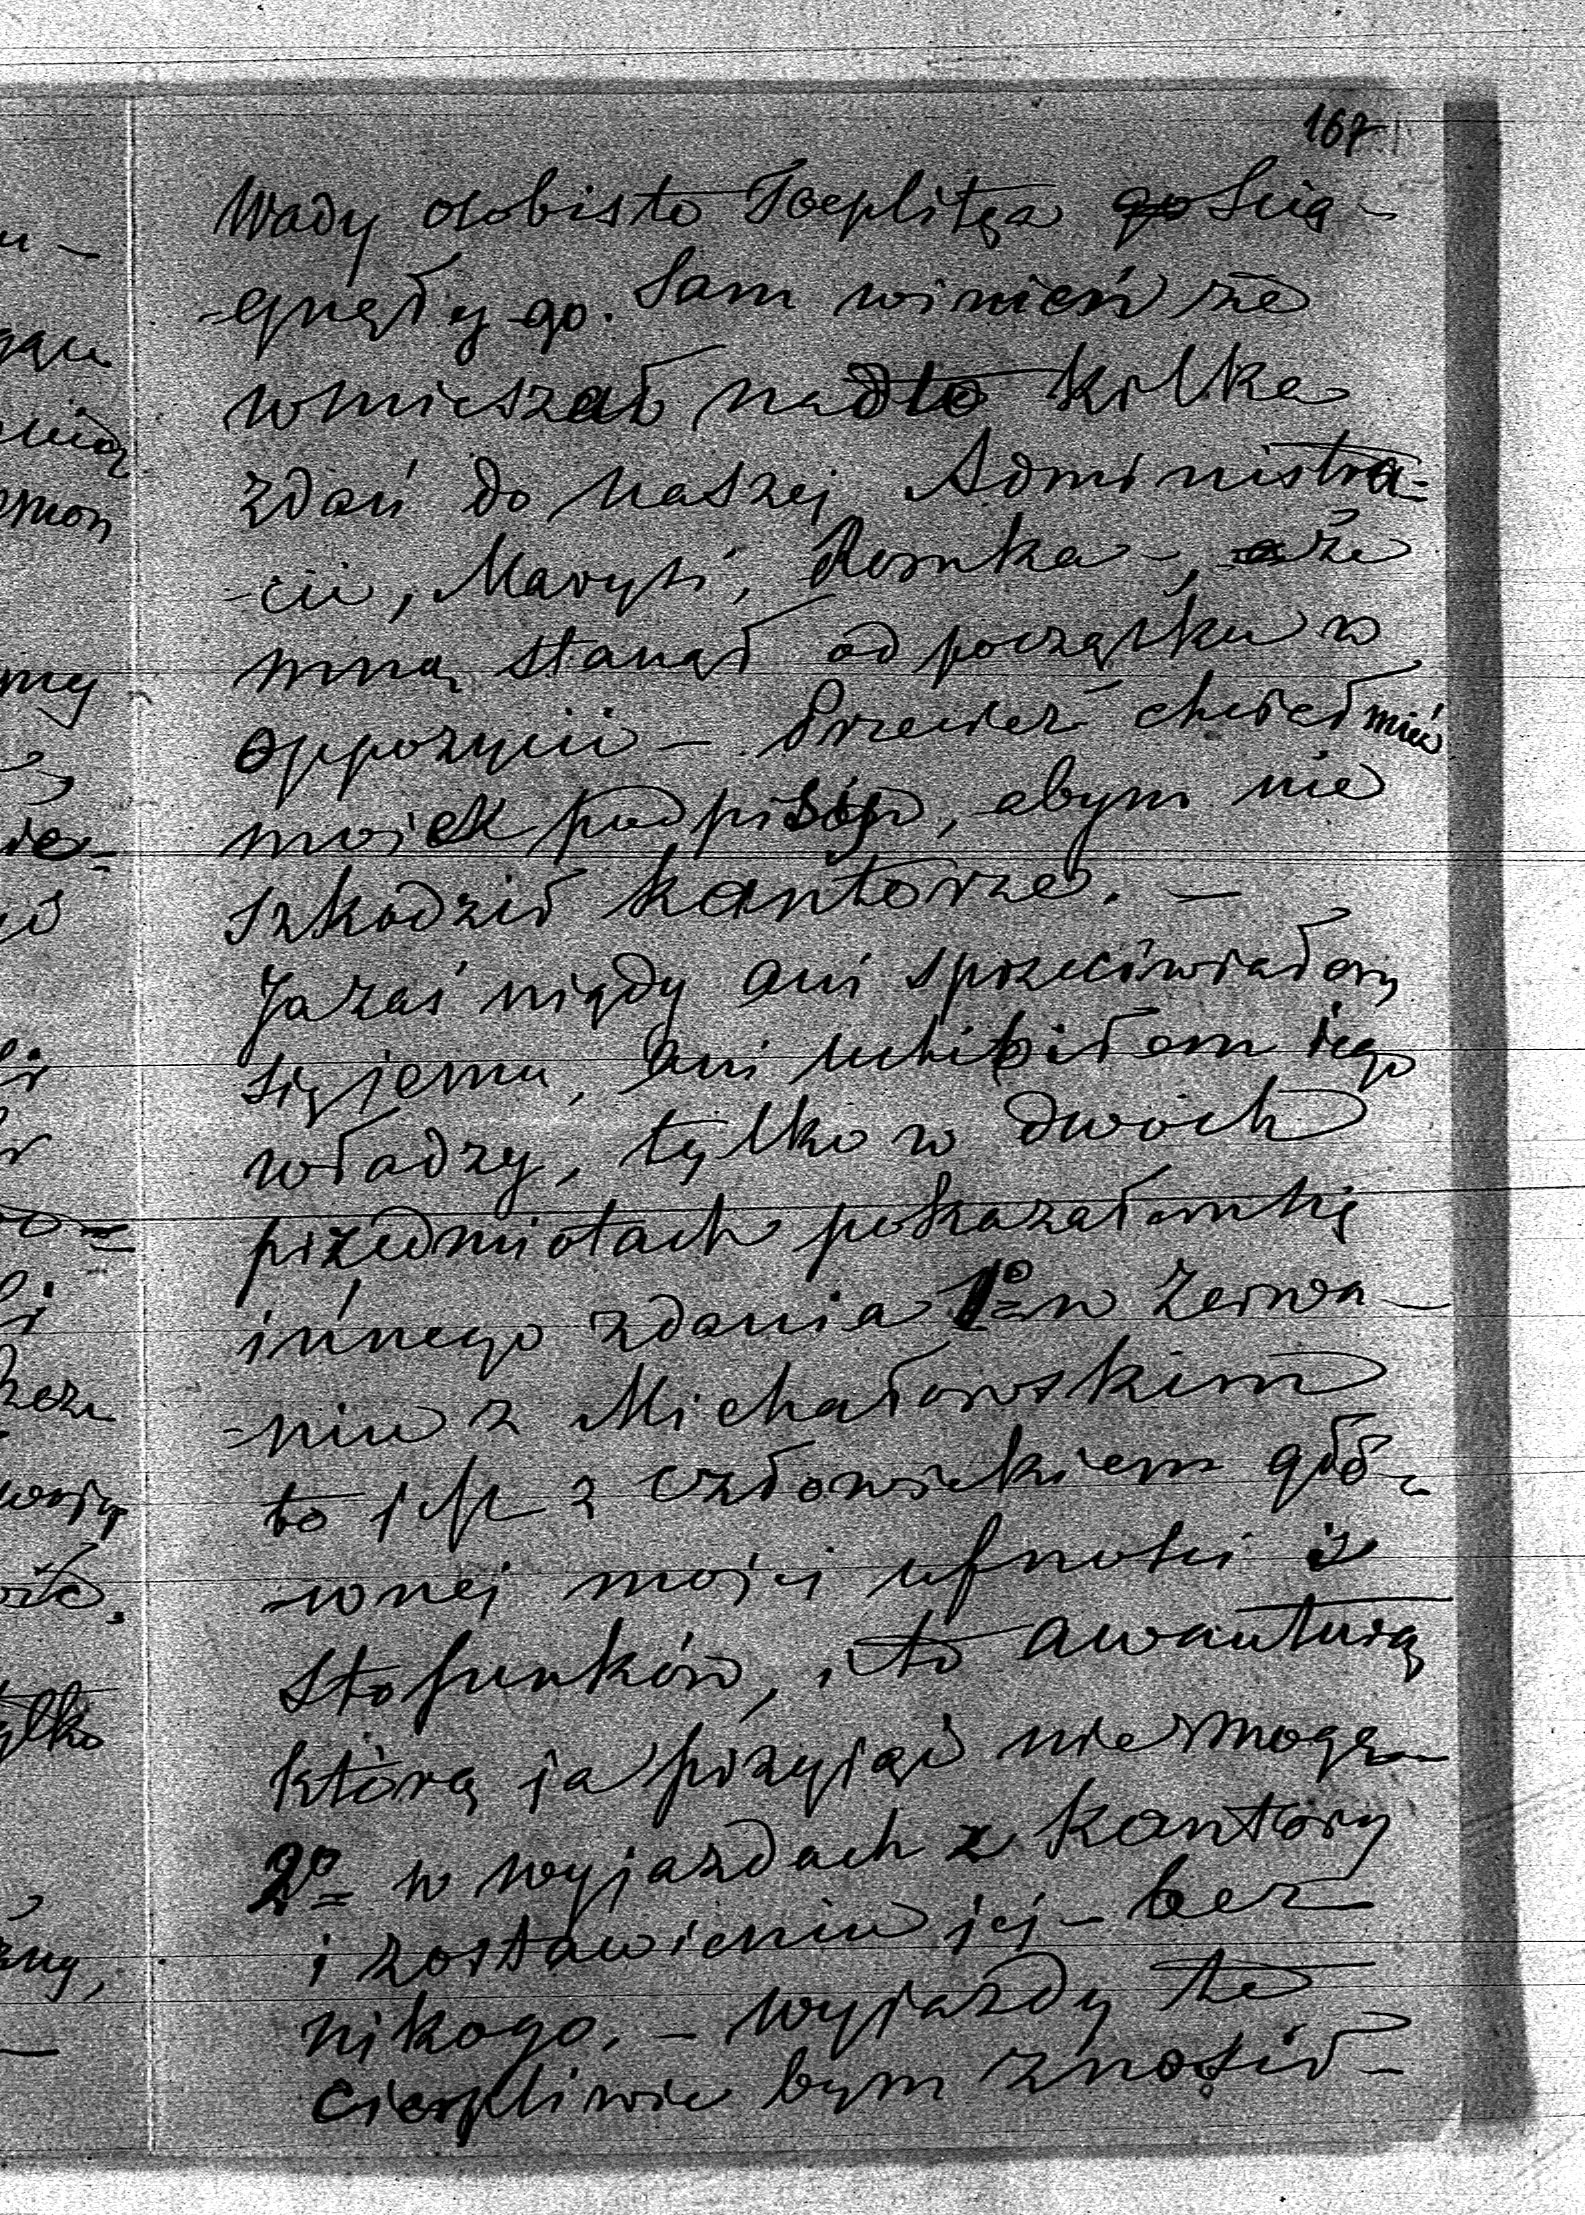 167
Wady osobiste Toeplitza go Scią-
-gnęły go. Sam winień że
wmieszał nadto kilka
zdań do naszej Administra-
-cii, Maryś, Romka -, że
mną stanął od początku w
oppozycii - Przecież chciał mieć
moiek podpisów, abym nie
szkodził kantorze. -
Ja zaś nigdy ani sprzeciwiałem
się jemu, ani uchibiłem iego
władzy, tylko w dwóch
przedmiotach pokazałem się
innego zdania 1º w Zerwa-
-niu z Michałowskim
to jest z człowiekiem głó-
-wnej mojej ufności i
stosunków, to awanturą
którą ja przyjąć nie mogę
2º w wyjazdach z kantory
i zostawieniu jej - bez
nikogo. - wyjazdy te
cierpliwie bym znosił -